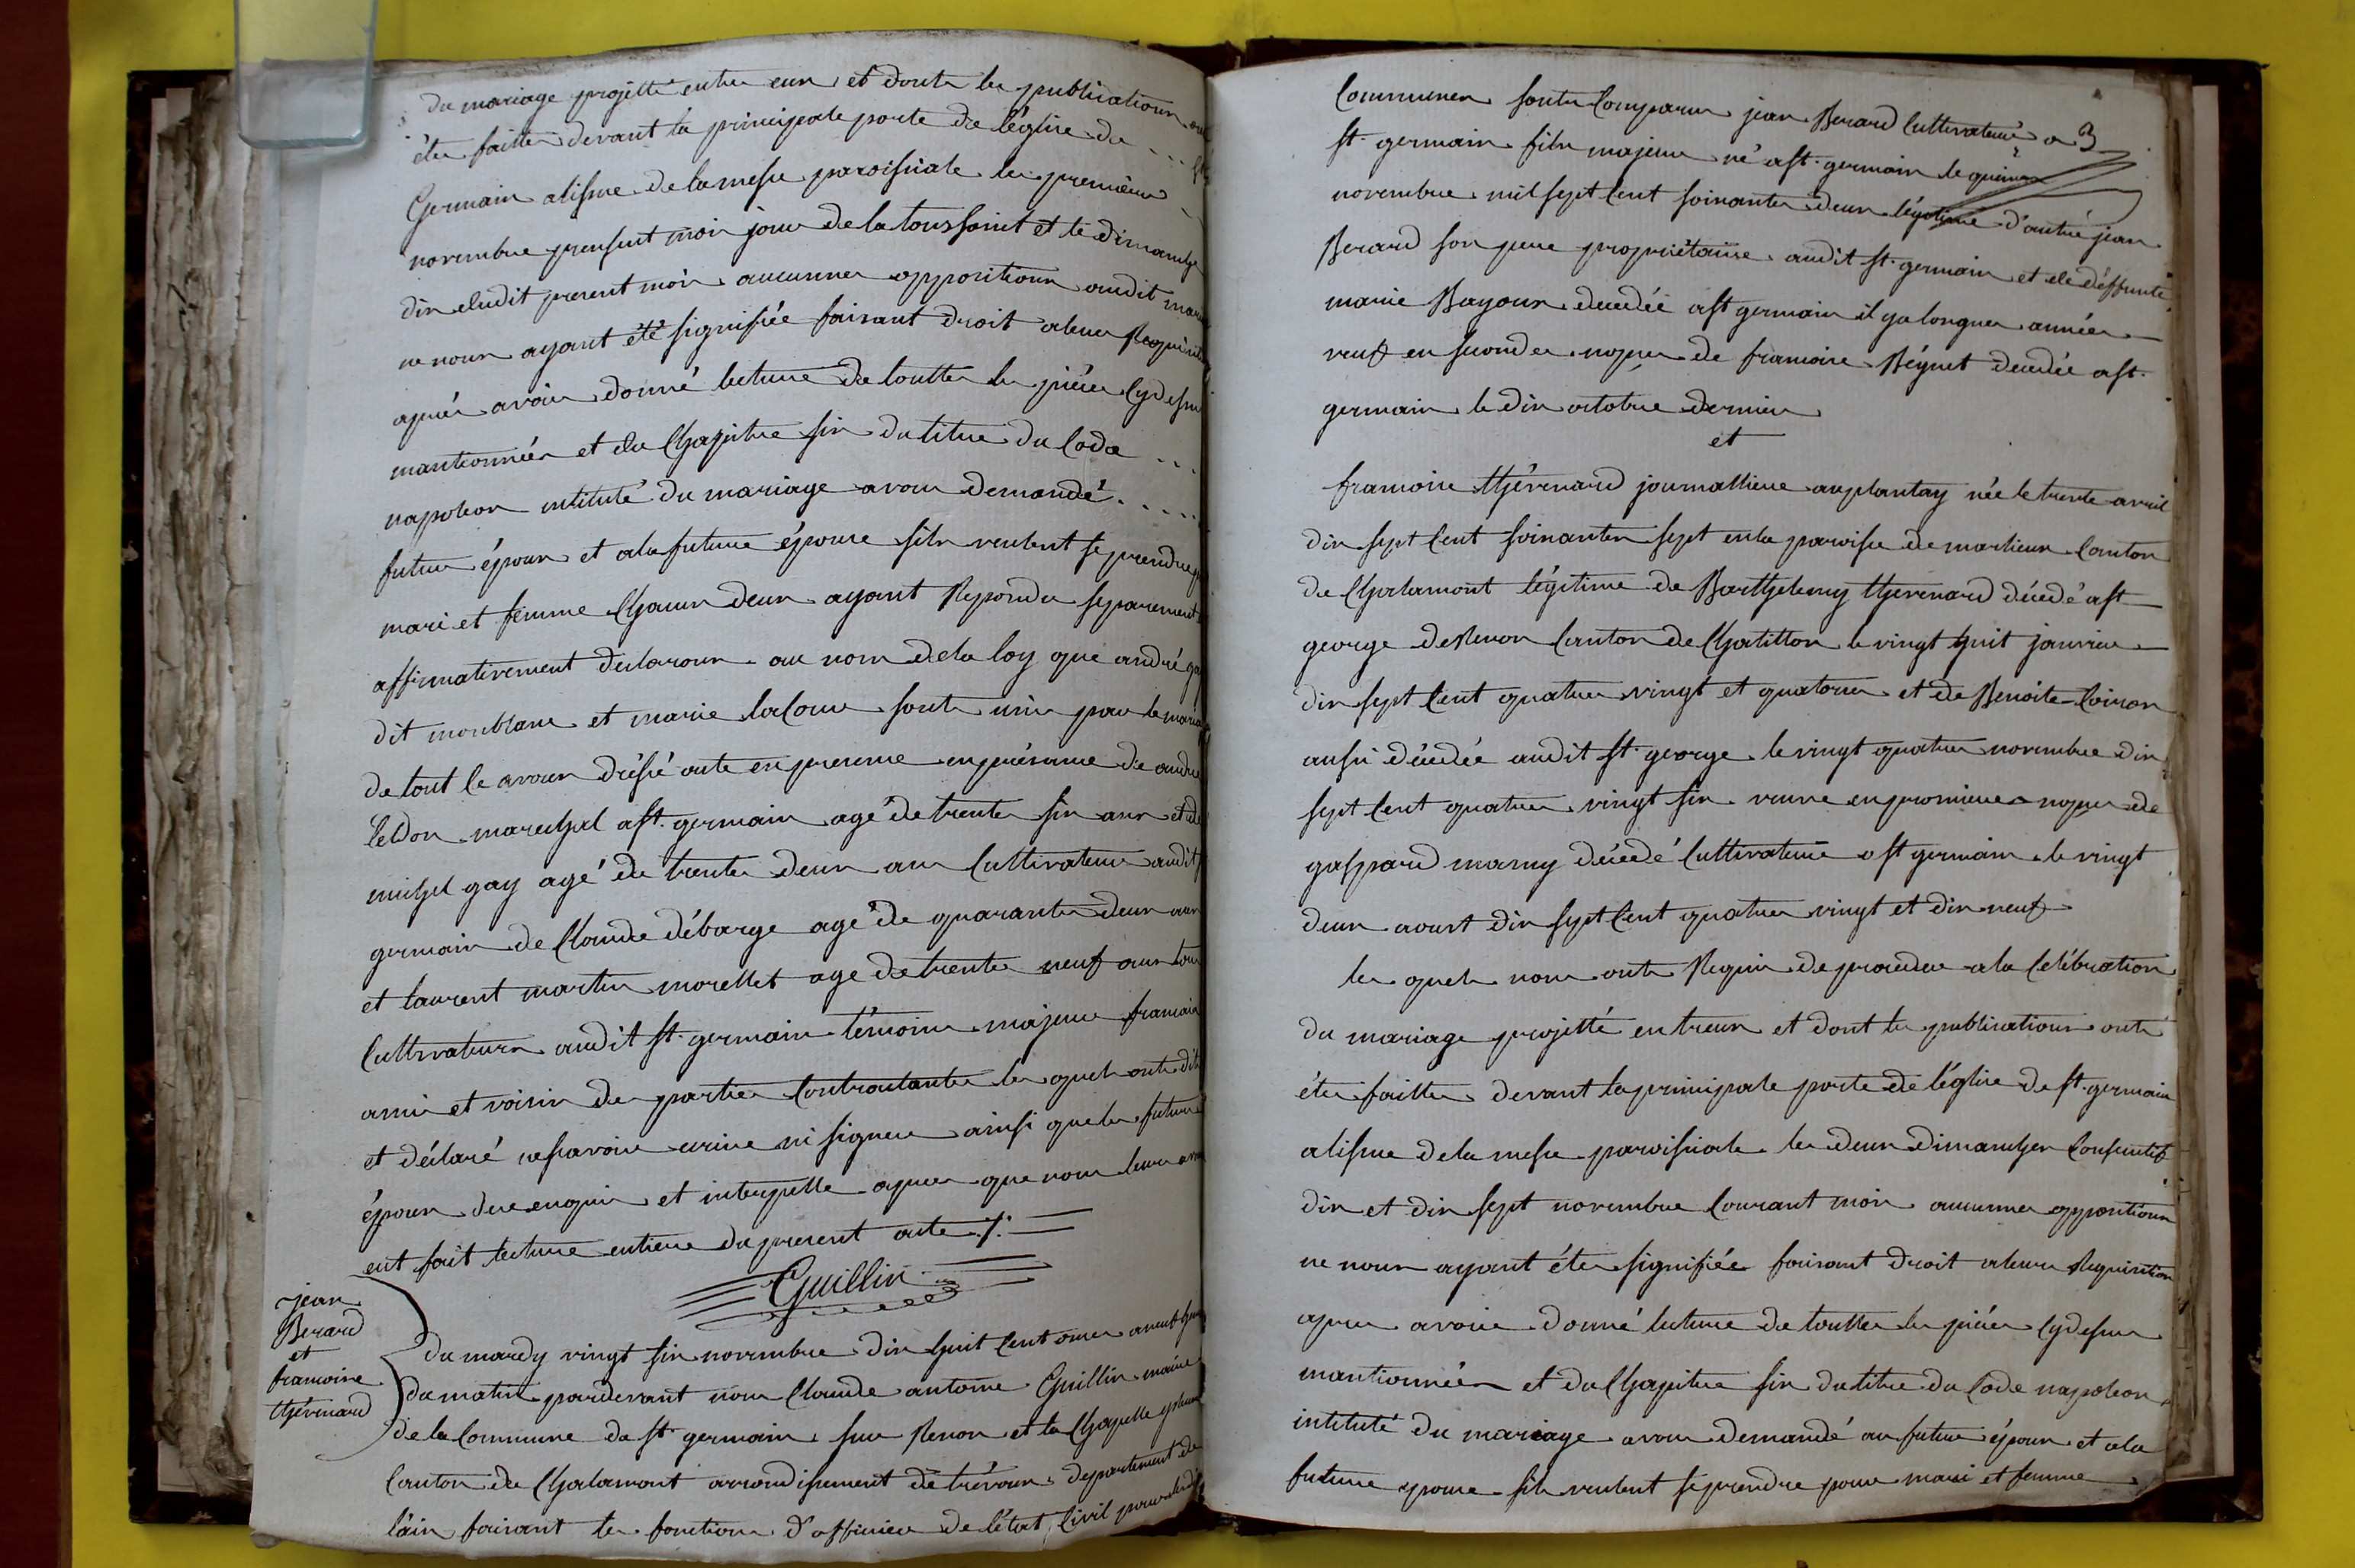 du mariage projetté entre eux et donts les publications ont
étés faittes devant la principale porte de l'église de ... St
Germain alissue de la messe paroissiale les premiers
novembre pressent mois jour de la toussaint et le dimanche
dix dudit present mois aucunnes oppositions audit mariage
ne nous ayant été signifiée faisant droit aleur Requisition
après avoir donné lecture de touttes les pièces cydessus
mantionnées et du Chapitre six du titre du Code ...
napoleon intitulé du mariage avons demandé .....
futur époux et ala future épouse sils veulent se prendre pour
mari et femme Chacun deux ayant Repondu separement
affirmativement declarons au nom de la loy que andré gay
dit monblanc et marie lacour sonts unis par le mariage
de tout ce avons dréssé acte en presence en présence de andré
marechal a st. germain agé de trente six ans et de
michel gay agé de trente deux ans Cultivateur audit st
germain de Claude débarge agé de quarante deux ans
et laurent martin morellet agé de trente neuf ans tous
Cultivateurs audit st. germain témoins majeurs francais
amis et voisin des parties Contractantes les quels onts dit
et déclaré nesavoir ecrire ni signer ainsi que les futurs
époux de ce enquis et interpellé après que nous leurs avons
eut fait lecture entiere du present acte ./.
Guillin
jean
Berard
et
francoise
thévenard
du mardy vingt six novembre dix huit Cent onze a neuf heures
du matin pardevant nous Claude antoine Guillin maire
de la Commune de st. germain sur Renon et la Chapelle
Canton de Chalamont arrondissement de trévoux département de
l'ain faisant les fonctions d'officier de l'état Civil pour lesdites
Communes sonts Comparus jean Berard Cultivateur a
st. germain fils majeur né a st. germain le quinze
novembre mil sept Cent soixante deux légitime d'autre jean
Berard son pere propriétaire audit st. germain et de déffunte
marie Bayoux decedée a st germain il ya longues années
veuf en secondes noppes de francoise Béguet decedée a st.
germain le dix octobre dernier
et
francoise thévenard journalliere auplantay née le trente avril
dix sept Cent soixantes sept en la paroisse de marlieux Canton
de Chalamont légitime de Barthelemy thevenard décedé a st
george de Renon Canton de Chatillon le vingt huit janvier
dix sept Cent quatres vingt et quatorze et de Benoite Coiron
aussi décedée audit st. george le vingt quatre novembre dix
sept Cent quatres vingt six veuve en premieres noppes de
gaspard mamy décedé Cultivateur a st germain le vingt
deux aoust dix sept Cent quatres vingt et dix neuf
les quels nous onts Requis de proceder a la Celébration
du mariage projetté entreux et dont les publications onts
étés faittes devant la principale porte de l'église de st. germain
alissue de la messe paroissiale les deux dimanches Consecutifs
dix et dix sept novembre Courant mois aucunnes oppositions
ne nous ayant étés signifiée faisant droit aleurs Requisition
apres avoir donné lecture de touttes les pièces cydessus
mantionnées et du Chapitre six du titre du Code napoleon
intitulé du mariage avons demandé au futur époux et ala
future epouse sils veulent se prendre pour mari et femme